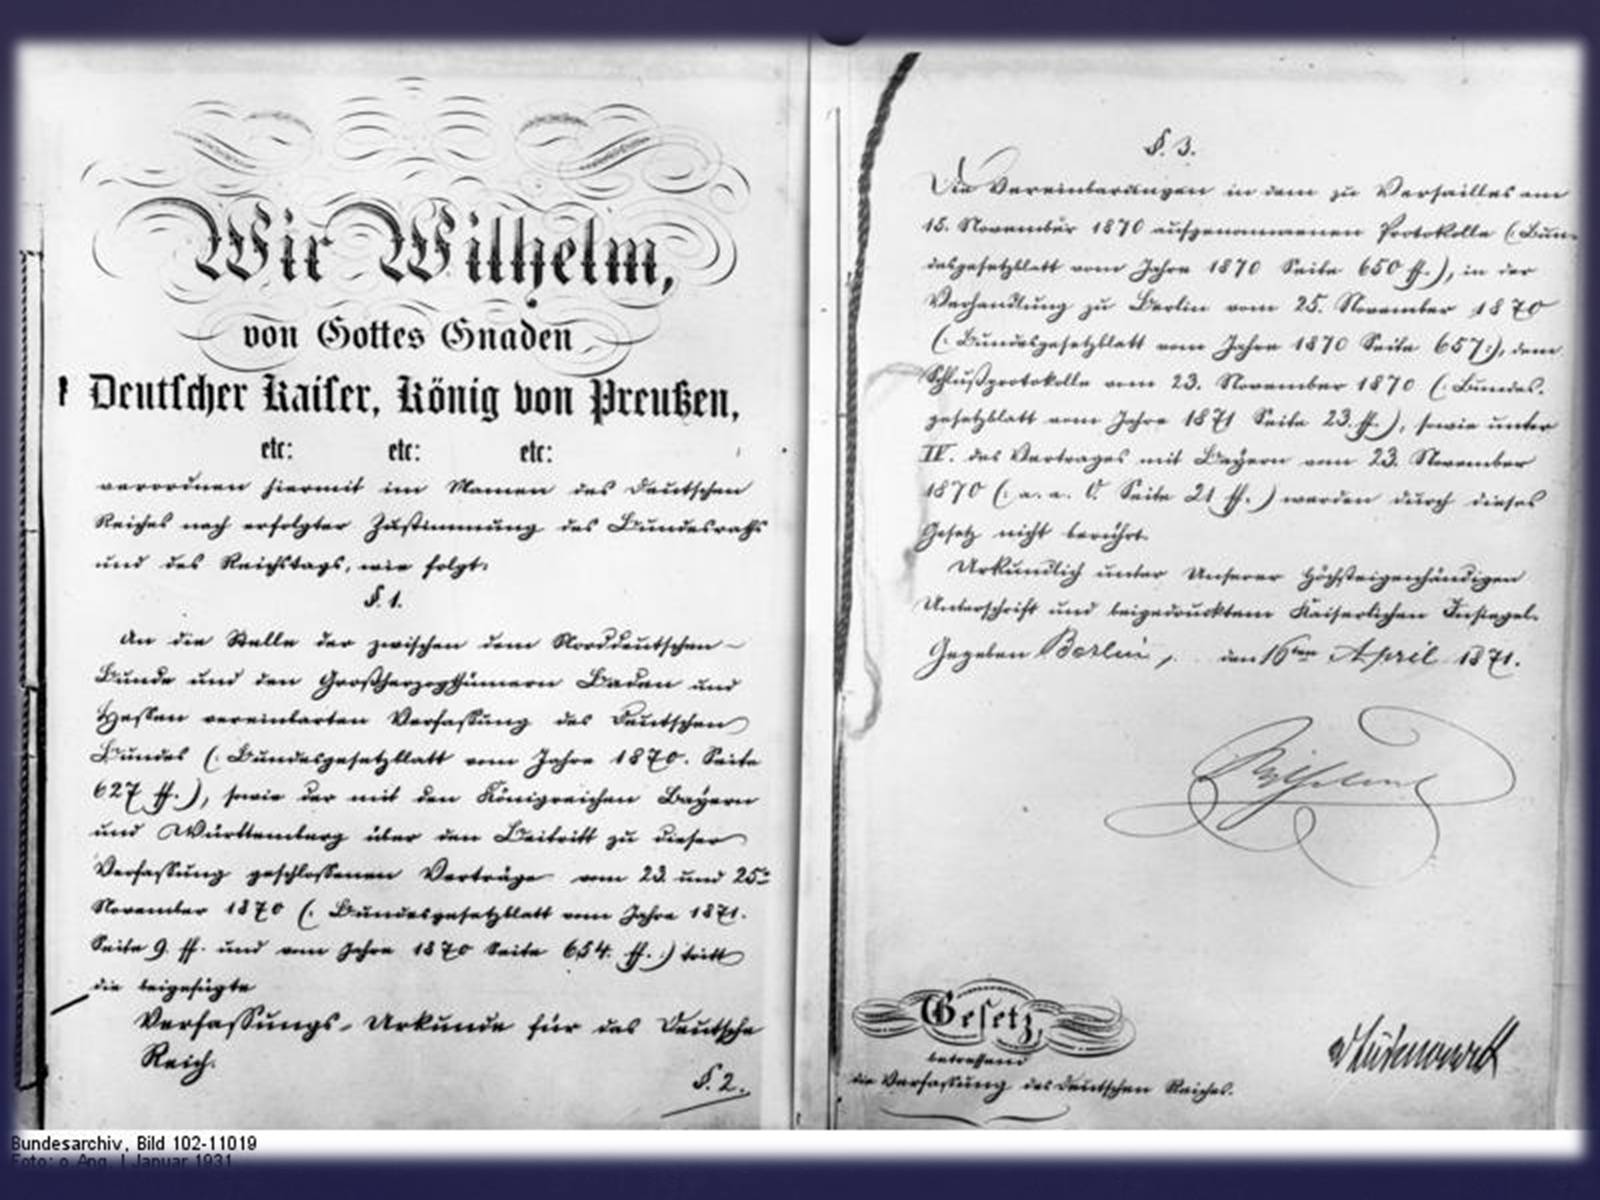 Wir Wilhelm,
von Gottes Gnaden
Deutscher Kaiser, König von Preußen,
etc: etc: etc:
verordnen hiermit im Namen des Deutschen
Reiches nach erfolgter Zustimmung des Bundesraths
und des Reichstags, wie folgt:
§. 1.
An die Stelle der zwischen dem Norddeutschen
Bunde und den Großherzogthümern Baden und
Hessen vereinbarten Verfassung des Deutschen
Bundes (: Bundesgesetzblatt vom Jahre 1870. Seite
627 ff.), sowie der mit den Königreichen Bayern
und Württemberg über den Beitritt zu dieser
Verfassung geschlossenen Verträge vom 23. und 25.
November 1870 (: Bundesgesetzblatt vom Jahre 1871.
Seite 9. ff. und vom Jahre 1870 Seite 654. ff.:) tritt
die beigefügte
Verfassungs-Urkunde für das Deutsche
Reich.
§. 2.
§. 3.
Die Vereinbarungen in dem zu Versailles am
15. November 1870 aufgenommenen Protokolle (: Bun-
desgesetzblatt vom Jahre 1870 Seite 650 ff.), in der
Verhandlung zu Berlin vom 25. November 1870
(: Bundesgesetzblatt vom Jahre 1870 Seite 657:), dem
Schlußprotokolle vom 23. November 1870 (: Bundes-
gesetzblatt vom Jahre 1871 Seite 23. ff.), sowie unter
IV. des Vertrages mit Bayern vom 23. November
1870 (: a. a. O. Seite 21 ff.) werden durch dieses
Gesetz nicht berührt.
Urkundlich unter Unserer Höchsteigenhändigen
Unterschrift und beigedrucktem Kaiserlichen Insiegel.
Gegeben Berlin, den 16ten April 1871.
Wilhelm
Gesetz,
betreffend
die Verfassung des Deutschen Reiches.
Bundesarchiv, Bild 102-11019
Foto: o.Ang. | Januar 1931